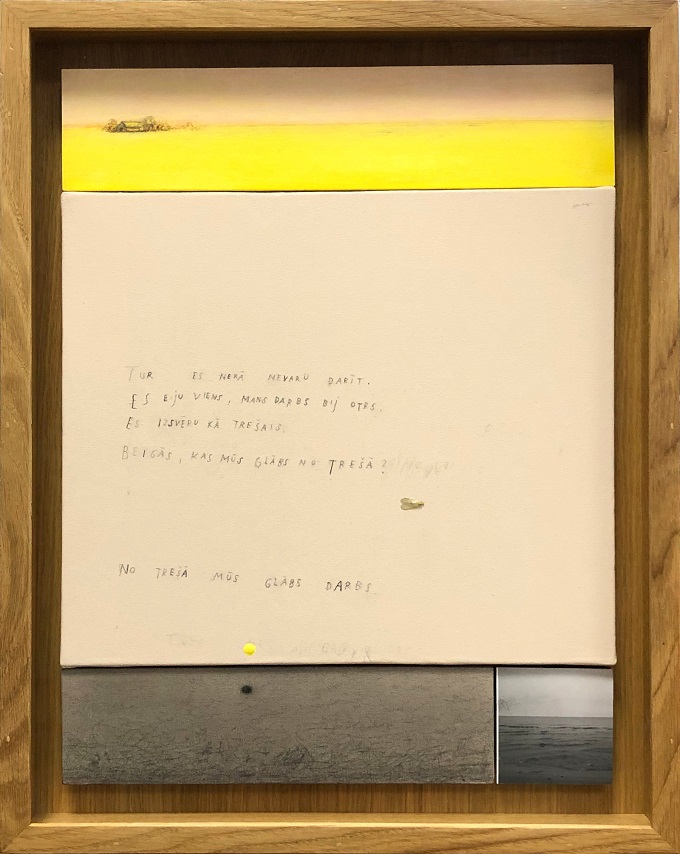 TUR ES NEKĀ NEVARU DARĪT.
ES EJU VIENS, MANS DARBS BIJ OTRS.
ES IZSVĒRU KĀ TREŠAIS.
BEIGĀS, KAS MŪS GLĀBS NO TREŠĀ?
NO TREŠĀ MŪS GLĀBS DARBS